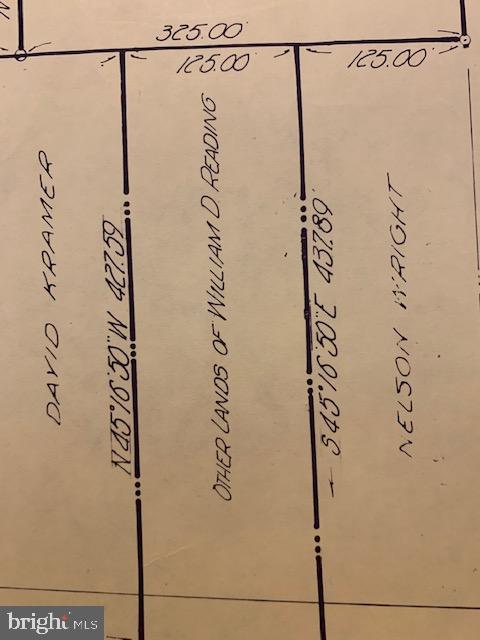 325.00
125.00
125.00
DAVID KRAMER
N 45°16'50" W 427.59
OTHER LANDS OF WILLIAM D READING
S 45°16'50" E 437.89
NELSON WRIGHT
bright MLS